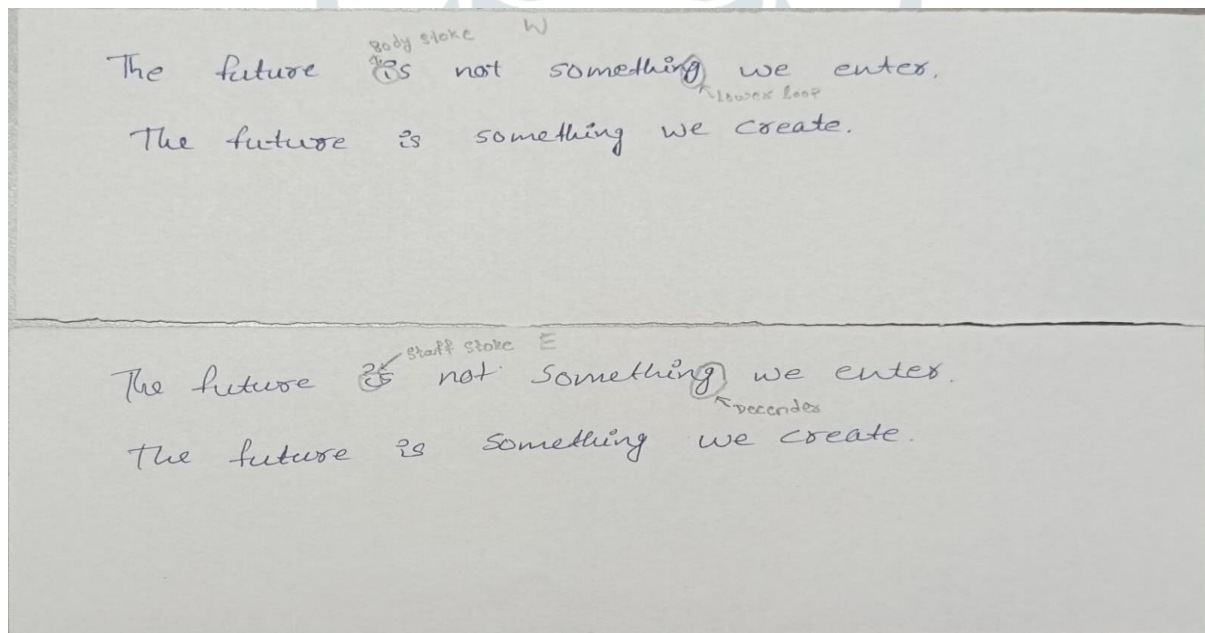 Body stoke W
The future is not something we enter.
Lower loop
The future is something we create.
Staff stoke E
The future is not something we enter.
Decender
The future is something we create.